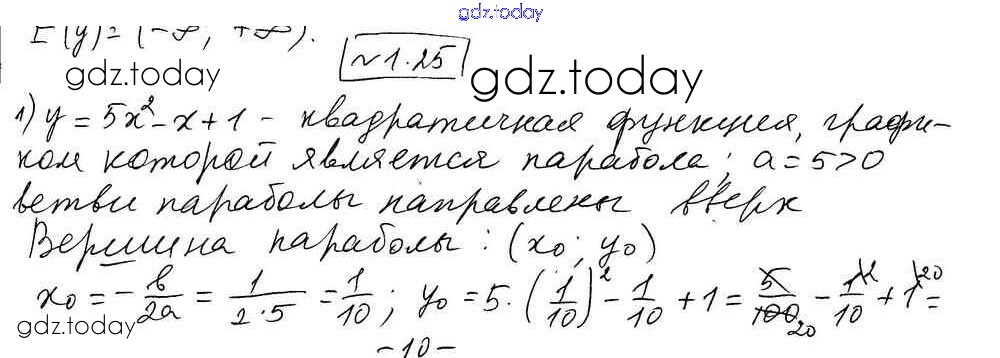 gdz.today
E(y)=(-∞; +∞).
№1.25
gdz.today gdz.today
1) y = 5x² - x + 1 - квадратичная функция, графи-
ком которой является парабола; a = 5 > 0
ветви параболы направлены вверх
Вершина параболы: (x₀; y₀)
x₀ = -b/2a = 1/2·5 = 1/10; y₀ = 5·(1/10)² - 1/10 + 1 = 5/100 20 - 1\2/10 + 1\20 =
gdz.today
-10-